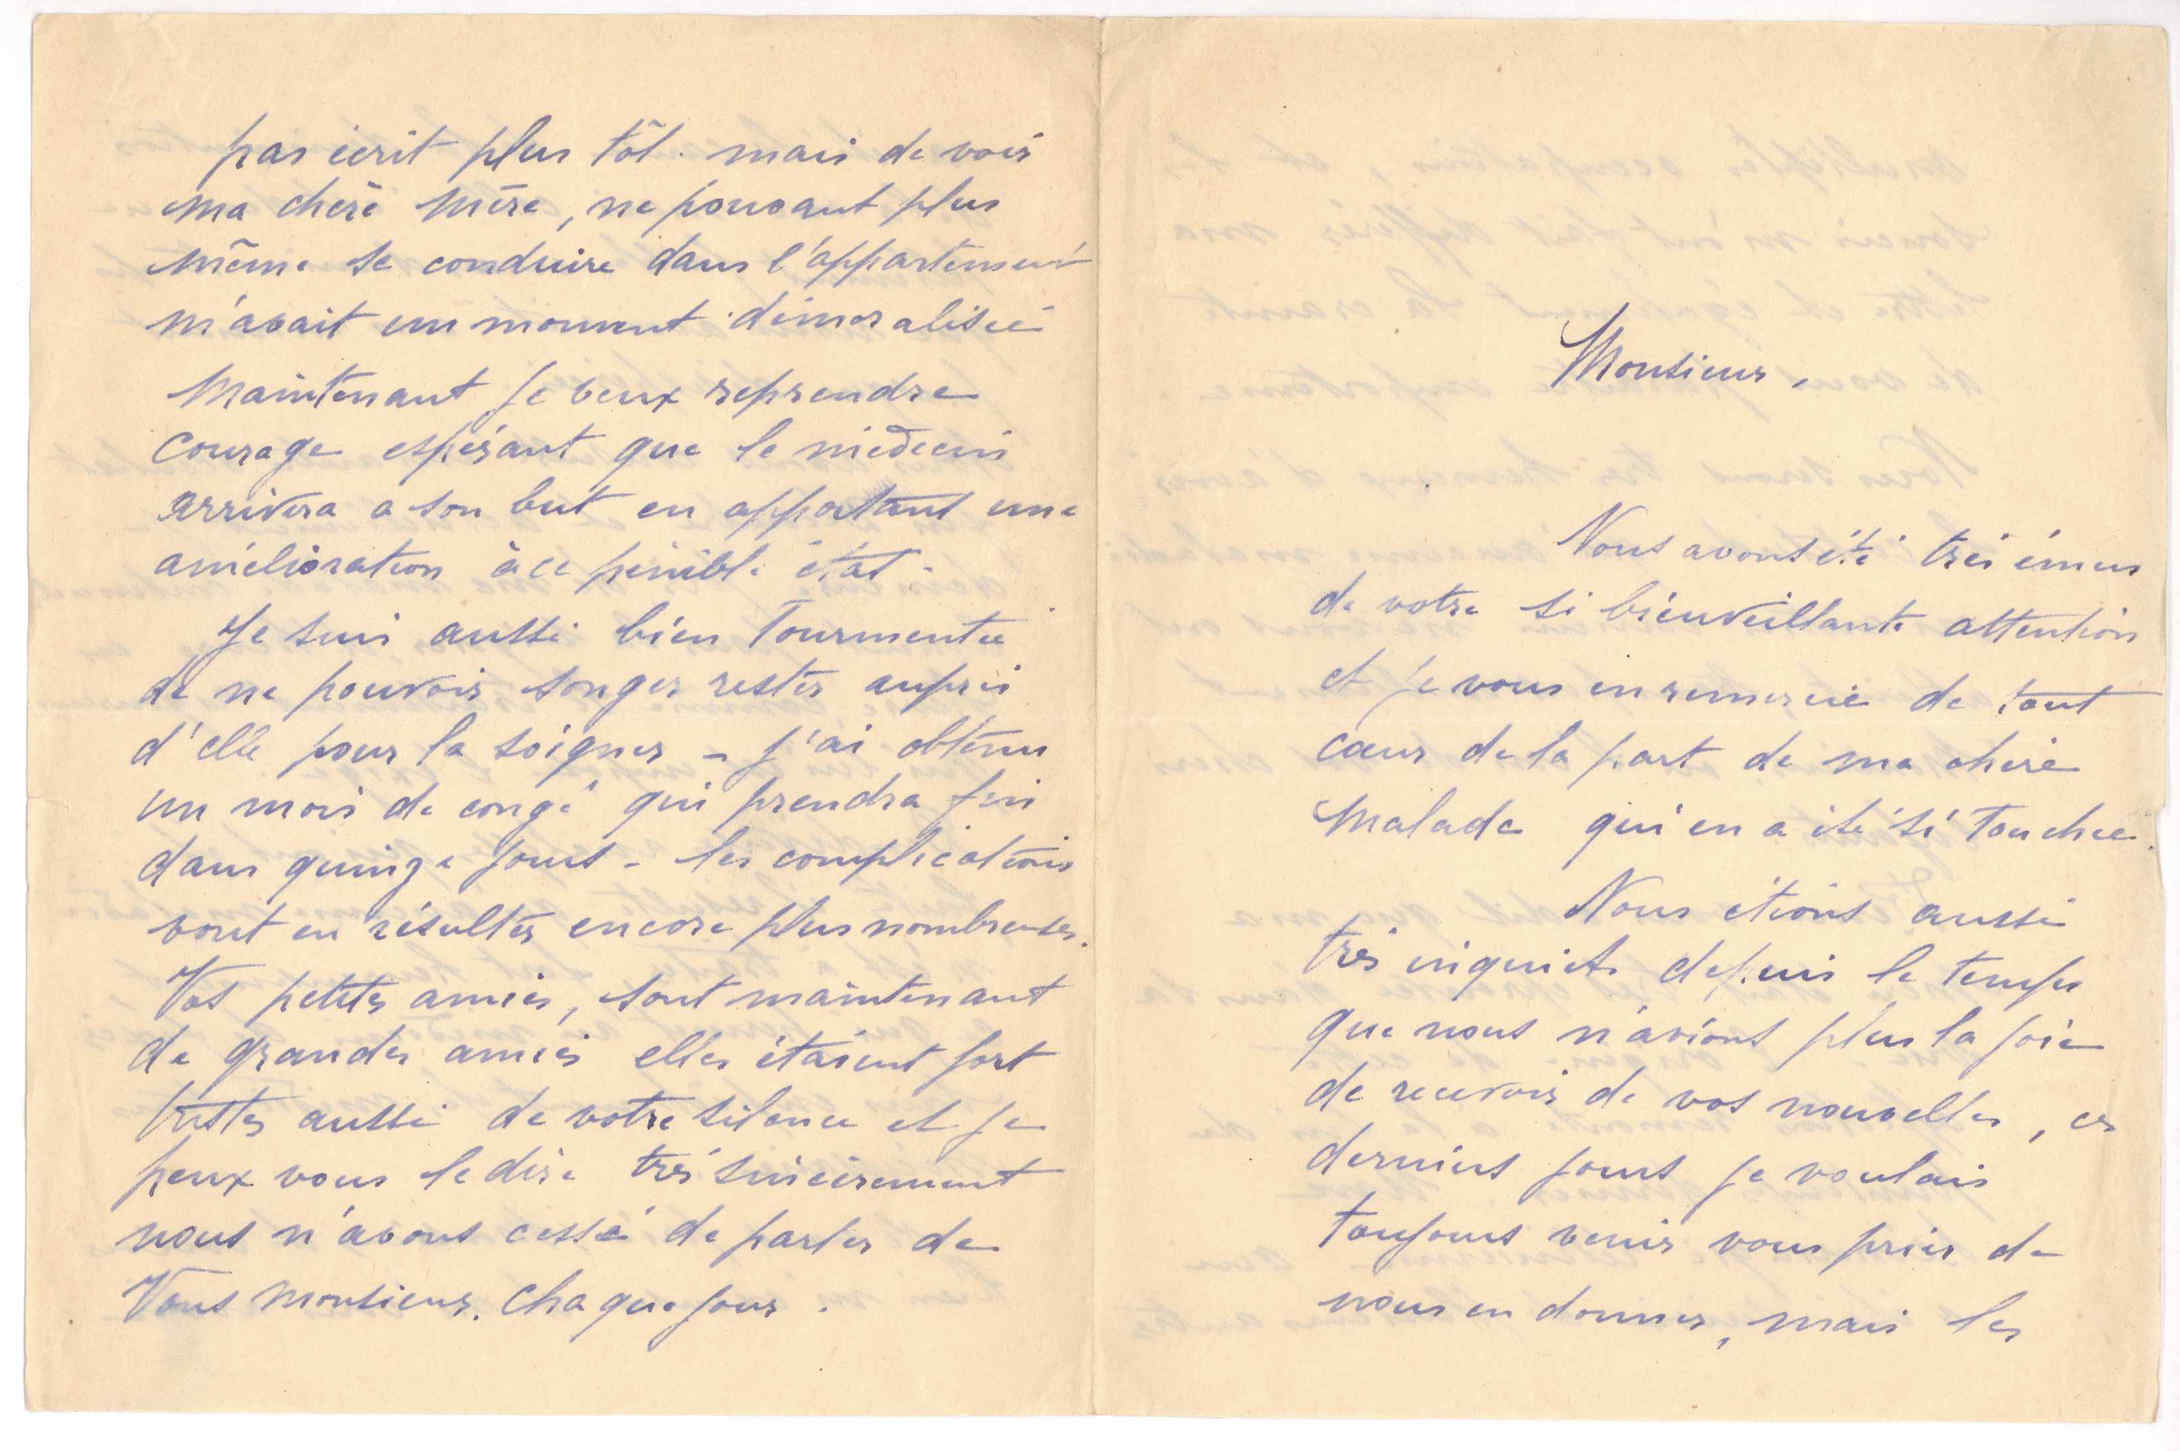 Monsieur,
Nous avons été très émus
de votre si bienveillante attention
et je vous en remercie de tout
cœur de la part de ma chère
Malade qui en a été si touchée.
Nous étions aussi
très inquiets depuis le temps
que nous n'avions plus la joie
de recevoir de vos nouvelles, ces
derniers jours je voulais
toujours venir vous prier de
nous en donner, mais les
pas écrit plus tôt. mais de voir
ma chère Mère, ne pouvant plus
même se conduire dans l'appartement
m'avait un moment démoralisée
Maintenant je veux reprendre
courage espérant que le médecin
arrivera a son but en apportant une
amélioration à ce pénible état.
Je suis aussi bien Tourmentée
de ne pouvoir songer rester auprès
d'elle pour la soigner - j'ai obtenu
un mois de congé qui prendra fin
dans quinze jours - les complications
vont en résulter encore plus nombreuses.
Vos petites amies, sont maintenant
de grandes amies elles étaient fort
tristes aussi de votre silence et je
peux vous le dire très sincèrement
nous n'avons cessé de parler de
Vous monsieur. chaque jour.